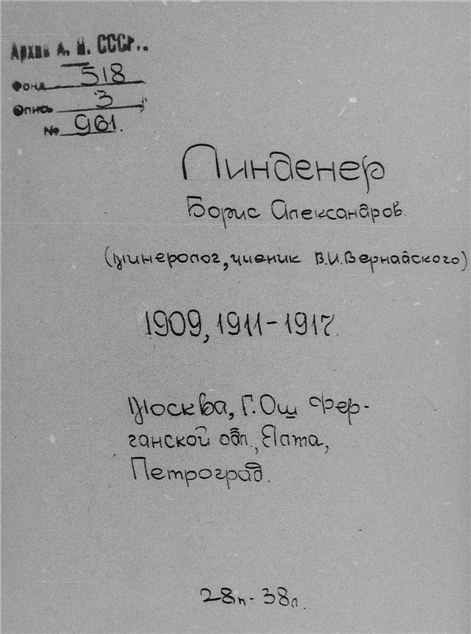 Архив А. Н. СССР..
Фонд 518
Опись 3
№ 961.
Линденер
Борис Александров.
(минеролог, ученик В.И.Вернадского)
1909, 1911-1917.
Москва, Г. Ош Фер-
ганской обл., Ялта,
Петроград.
28п.- 38л.